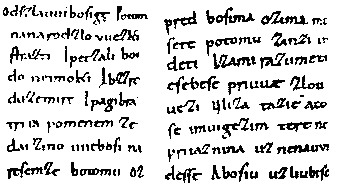 Od szlauui bosige Potom
nanarod zlovuezki
strazti Ipetzali boi
do neimoki Ibzzre
duzemirt Ipagibra
triia pomenem ze
dai zino uuebosi na
resemze botomu oz
pred bosima osima mo
sete potomu zinzi
deti Izami razumeti
esebese priuuae zlou
uezi Uliza tazie aco
se imuigezim tere ne
priiaznina uznenauvi
desse Abosiu uzliubise